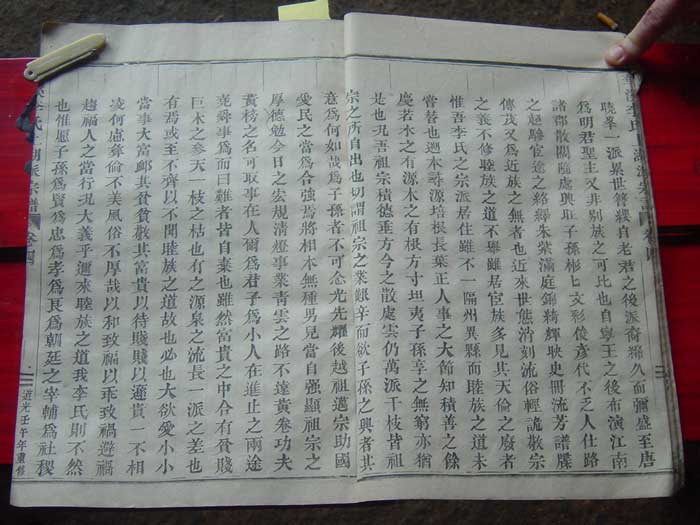 曉峯一派累世簪纓自老君之後派裔綿久而彌盛至唐
爲明君聖主又非別族之可比也自舉王之後布演江南
諸郡散闢隨處興旺子孫彬匕文彩俊彦代不乏人仕路
之趨驂宦途之絡繹朱紫滿庭錦綺輝映史冊流芳譜牒
傳茂又爲近族之無者也近來世態澆刻流俗輕詭敬宗
之義不修睦族之道不舉雖居宦族多見其天倫之廢者
惟吾李氏之宗派居住雖不一隔州異縣而睦族之道未
嘗替也迺本尋源培根長葉正人事之大節知積善之餘
慶若水之有源木之有根方寸坦夷子孫享之無窮亦猶
是也况吾祖宗積德垂方今之散處雲仍萬派千枝皆祖
宗之所自出也切謂祖宗之業艱辛而欲子孫之興者其
意爲何如哉爲子孫者不可念光先耀後越祖邁宗助國
愛民之當爲合強焉將相本無種男兒當自强顯祖宗之
厚德勉今日之宏規清燈事業青雲之路不達黄卷功夫
黄榜之名可取事在人爾爲君子爲小人在進止之兩途
堯舜事爲而曰難者皆自棄也雖然富貴之中合有貧賤
巨木之參天一枝之枯也有之源泉之流長一派之差也
有焉或至不齊以不聞睦族之道故也必也大欲愛小小
當事大富邮其貧貧敬其富貴以待賤賤以遜貴一不相
凌何虑彜倫不美風俗不厚哉以和致福以乖致禍避禍
趋福人之當行况大義乎邇來睦族之道我李氏則不然
也惟愿子孫爲賢爲忠爲孝爲良爲朝廷之宰輔爲社稷
氏 湖派宗譜 卷四
道光壬午年重修